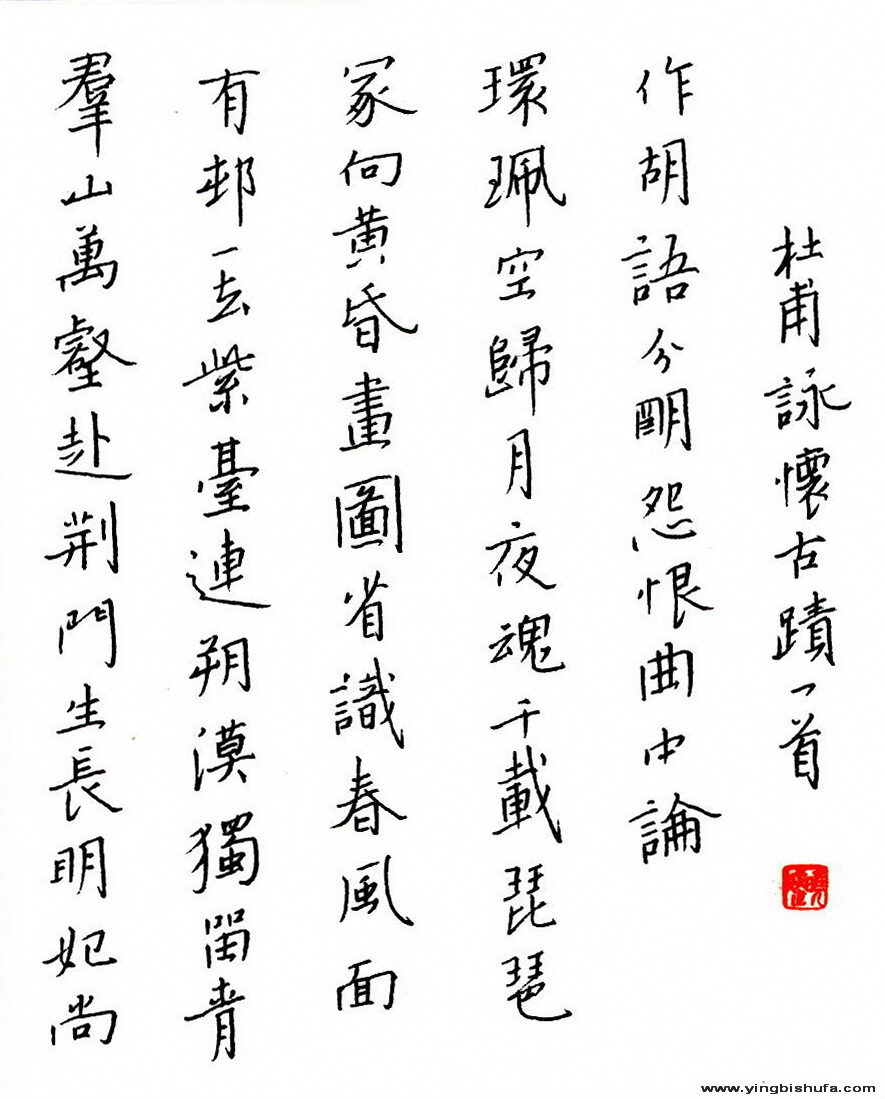 羣山萬壑赴荆門生長明妃尚
有邨一去紫臺連朔漠獨留青
冢向黄昏畫圖省識春風面
環珮空歸月夜魂千載琵琶
作胡語分朙怨恨曲中論
杜甫詠懷古蹟一首
www.yingbishufa.com